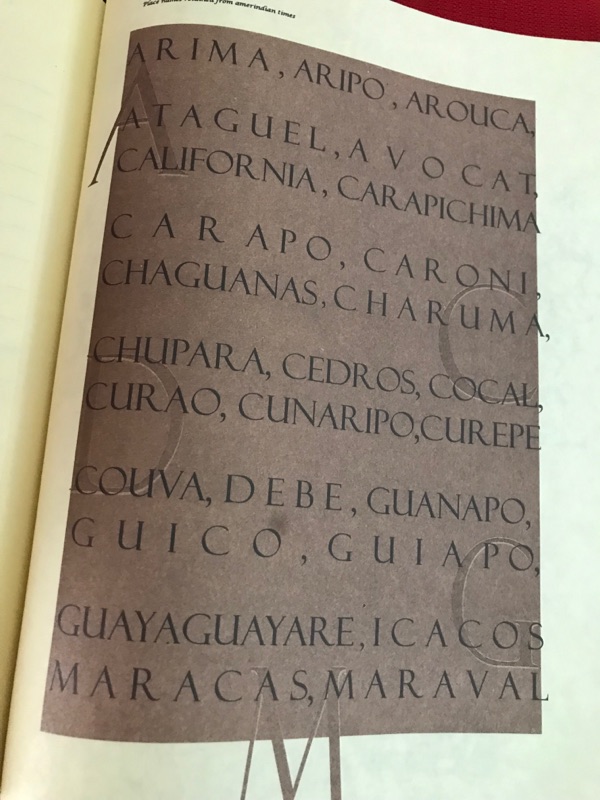 Place names retained from amerindian times
ARIMA, ARIPO, AROUCA,
ATAGUEL, AVOCAT,
CALIFORNIA, CARAPICHIMA
CARAPO, CARONI,
CHAGUANAS, CHARUMA,
CHUPARA, CEDROS, COCAL,
CURAO, CUNARIPO,CUREPE
COUVA, DEBE, GUANAPO,
GUICO, GUIAPO,
GUAYAGUAYARE, ICACOS
MARACAS, MARAVAL
A
C
D
G
M